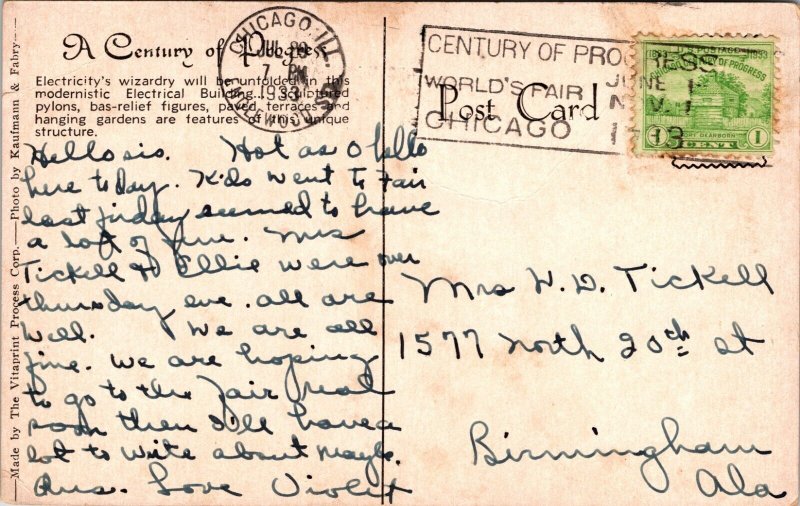 A Century of Progress
Electricity's wizardry will be unfolded in this
modernistic Electrical Building. Sculptured
pylons, bas-relief figures, paved terraces and
hanging gardens are features of this unique
structure.
CHICAGO, ILL.
JUL
7 PM
1933
ENGLEWOOD
CENTURY OF PROGRESS
WORLD'S FAIR JUNE 1
CHICAGO NOV. 1
1933
U.S. POSTAGE
CENTURY OF PROGRESS
1 CENT 1
Post Card
Hello sis. Hot as O hello
here today. Kids went to Fair
last firday seemed to have
a lot of fun. Mrs
Tickell & Ellie were over
thursday eve. all are
well. We are all
fine. We are hoping
to go to the Fair real
soon then I'll have a
lot to write about maybe.
Ans. Love Violet
Mrs W. D. Tickell
1577 North 20th st
Birmingham
Ala
Made by The Vitaprint Process Corp.—Photo by Kaufmann & Fabry